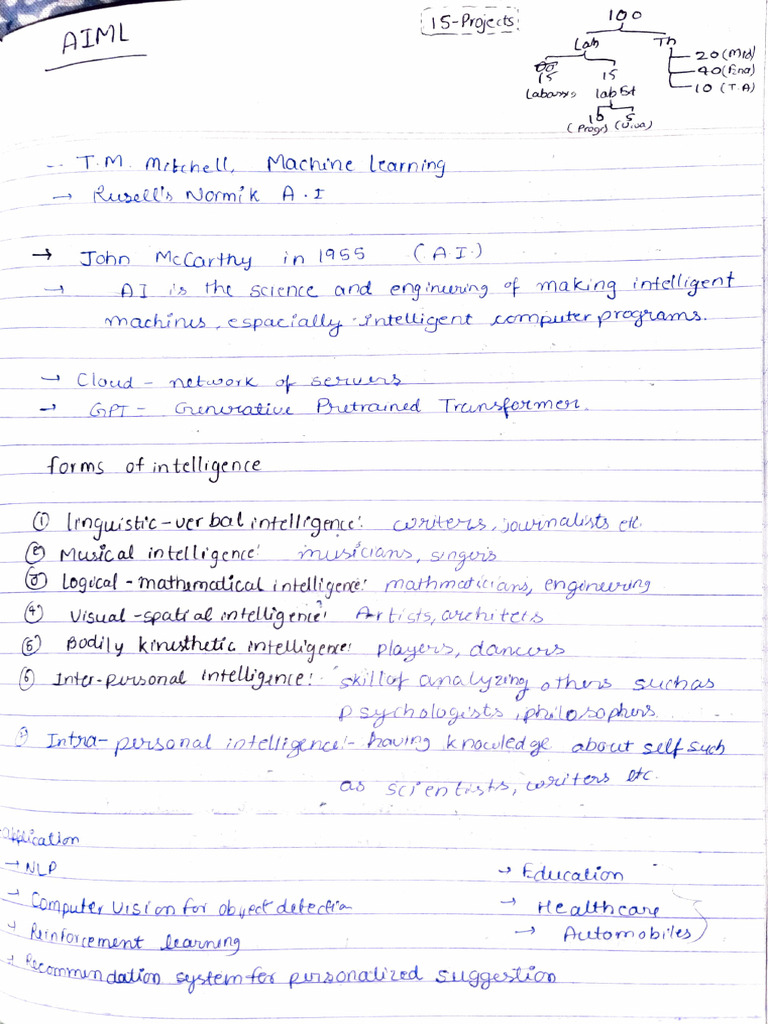 AIML
15-Projects
100
Lab Th
20 (Mid)
40 (End)
10 (T.A)
15 15
lab Ext
10 5
(Progr) (Viva)
-- T.M. Mitchell, Machine Learning
→ Rusell's Normik A.I
→ John McCarthy in 1955 (A.I.)
→ AI is the science and engineering of making intelligent
machines, espacially intelligent computer programs.
→ Cloud - network of servers
→ GPT - Generative Pretrained Transformer.
forms of intelligence
① linguistic-verbal intelligence: writers, journalists etc.
② Musical intelligence: musicians, singers
③ Logical-mathematical intelligence: mathmaticians, engineering
④ Visual-spatial intelligence: Artists, architets
⑤ Bodily kinesthetic intelligence: players, dancers
⑥ Inter-personal intelligence: skill of analyzing others such as
psychologists, philosophers
Intra-personal intelligence:- having knowledge about self such
as scientists, writers etc.
application
→ NLP
→ Computer vision for object detection
→ Reinforcement learning
→ Recommendation system for personalized suggestion
→ Education
→ Healthcare
→ Automobiles